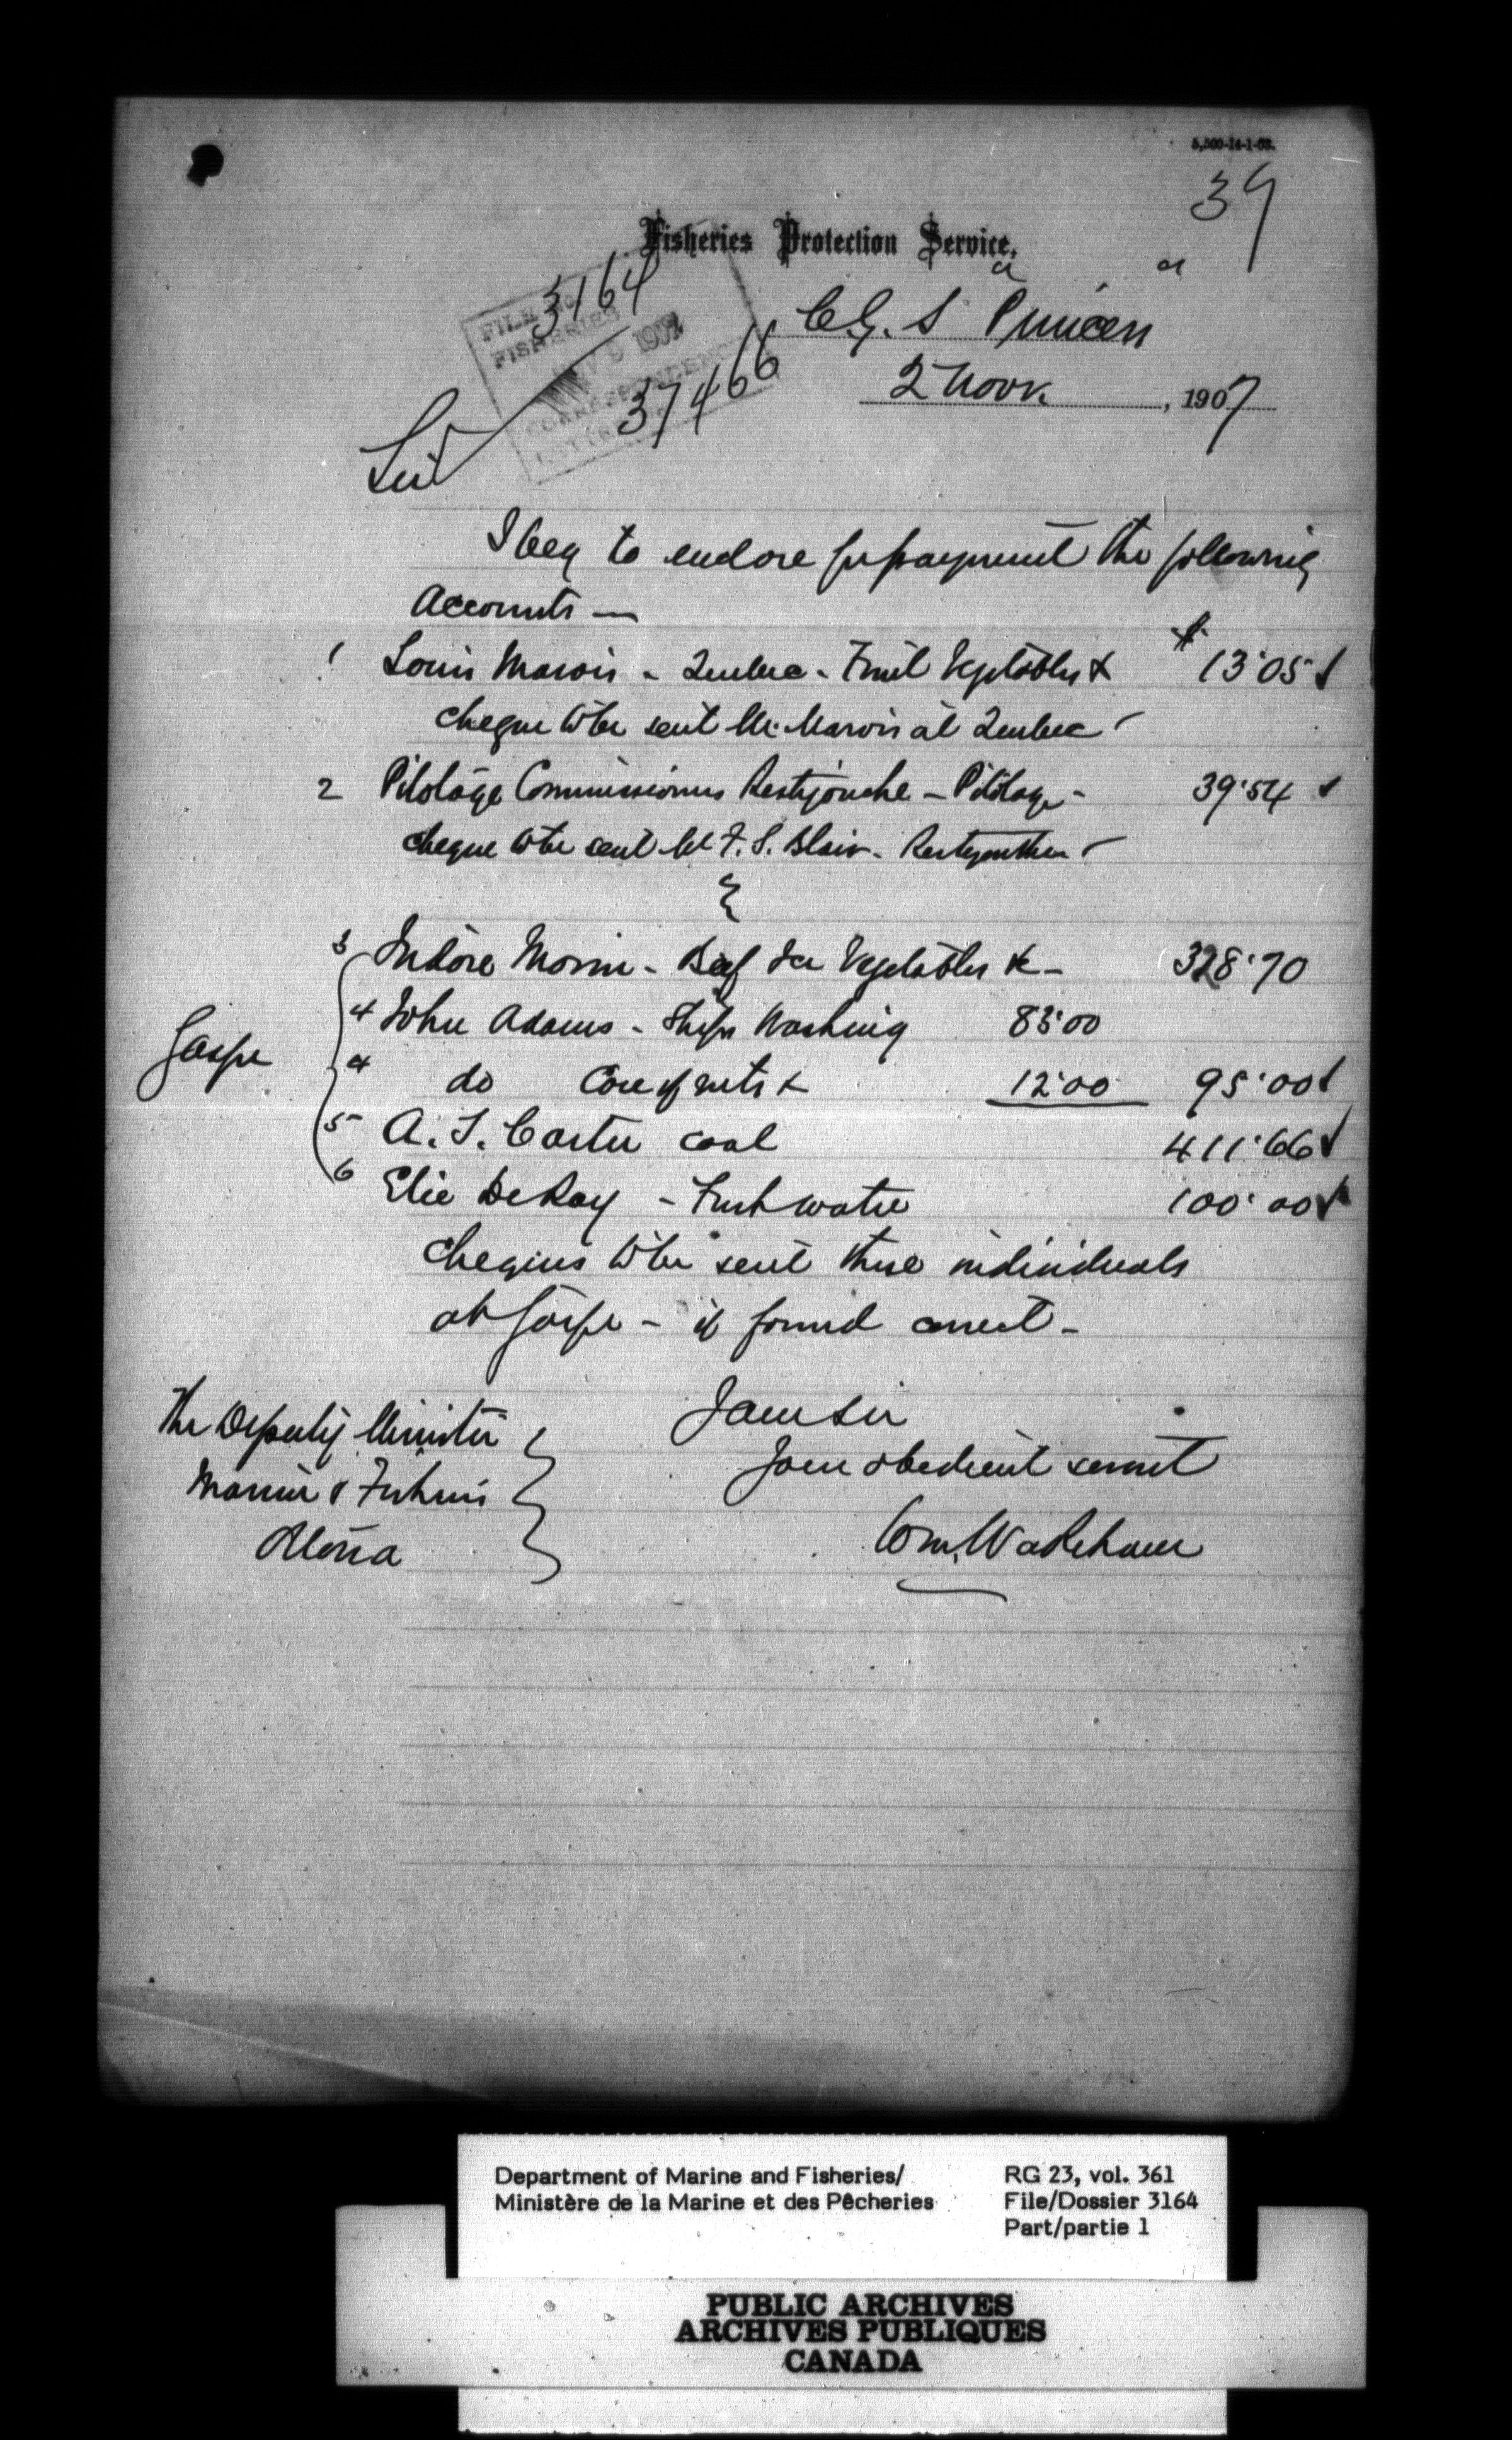 5,500-14-1-03.
39
Fisheries Protection Service.
C.G.S Princess
2 Novr. , 1907
FILE No. 3164
FISHERIES
NOV 9 1907
37466
CORRESPONDENCE
Sir
I beg to enclose for payment the following
Accounts —
$
1 Louis Marois - Quebec - Fruit Vegetables & 13.05
cheque to be sent Mr. Marois at Quebec
2 Pilotage Commissioners Restigouche - Pilotage - 39.54
cheque to be sent to F. S. Blair.
3 Isidore Morin - Beef Ice Vegetables &c - 328.70
4 John Adams - Ships Washing 83.00
Gaspe
4 do Care of nets & 12.00 95.00
5 A. J. Carter coal 411.66
6 Elie DeRoy - Fresh water 100.00
cheques to be sent these individuals
at Gaspe - if found correct -
I am Sir
Your obedient servant
Wm. Wakeham
The Deputy Minister
Marine & Fisheries
Ottawa
Department of Marine and Fisheries/
Ministère de la Marine et des Pêcheries
RG 23, vol. 361
File/Dossier 3164
Part/partie 1
PUBLIC ARCHIVES
ARCHIVES PUBLIQUES
CANADA